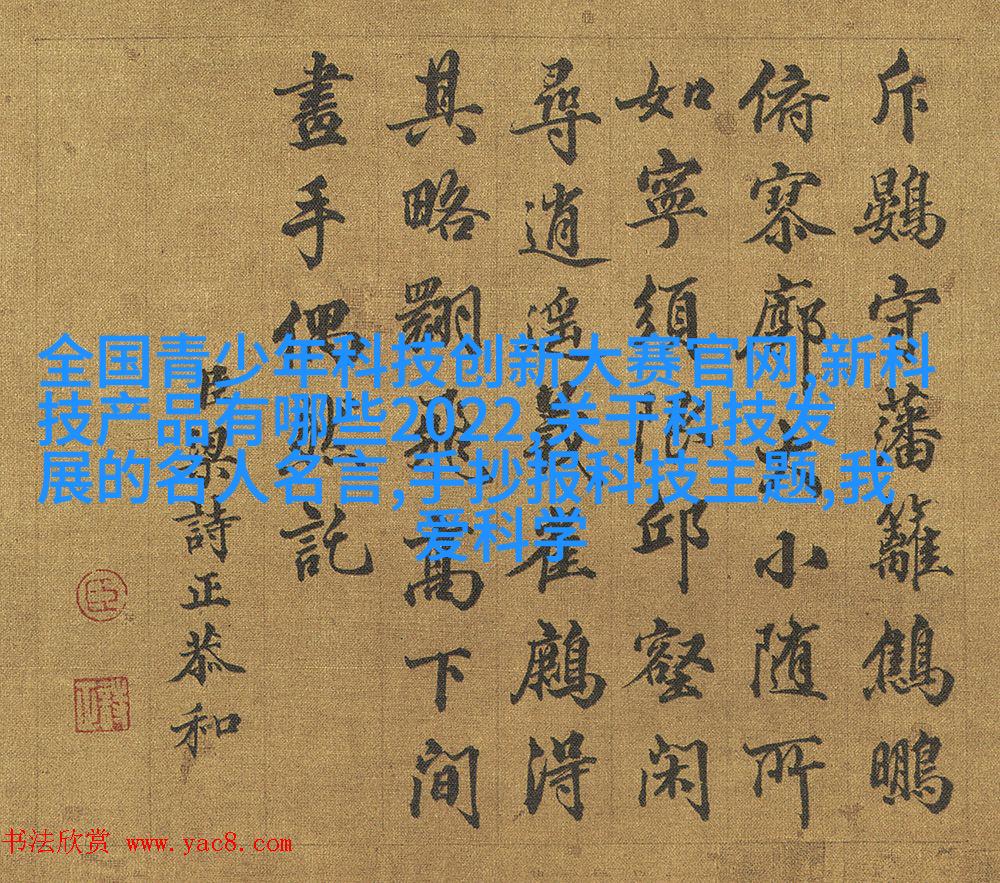 斥鷃守藩籬鷦鵬
俯寥廓小随所
如寧須限邱壑闲
尋逍遥義崔得
其略翾高下间
畫手偶然託
臣梁詩正恭和
臣
全国青少年科技创新大赛官网,新科
技产品有哪些2022,关于科技发
展的名人名言,手抄报科技主题,我
爱科学
书法欣赏 www.yac8.com